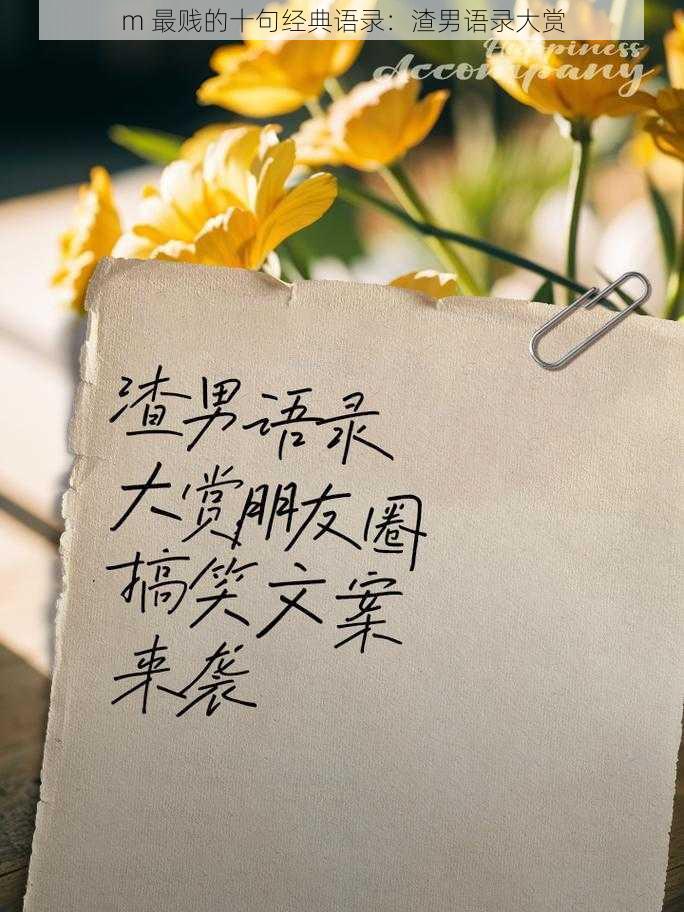 m 最贱的十句经典语录：渣男语录大赏
Happiness
Accompany
渣男语录
大赏朋友圈
搞笑文案
来袭